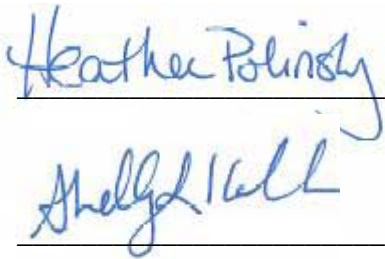 Heather Polinsky
Shelly